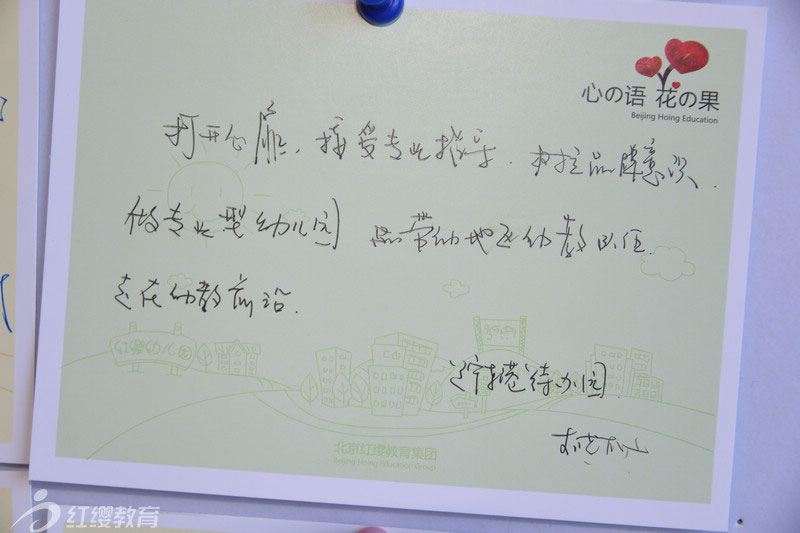 心の语 花の果
Beijing Hoing Education
打开心扉,接受专业指导.树立品牌意识.
做专业型幼儿园 带动地区幼教队伍
走在幼教前沿.
待办园
红缨幼儿园
北京红缨教育集团
Beijing Hoing Education Group
红缨教育